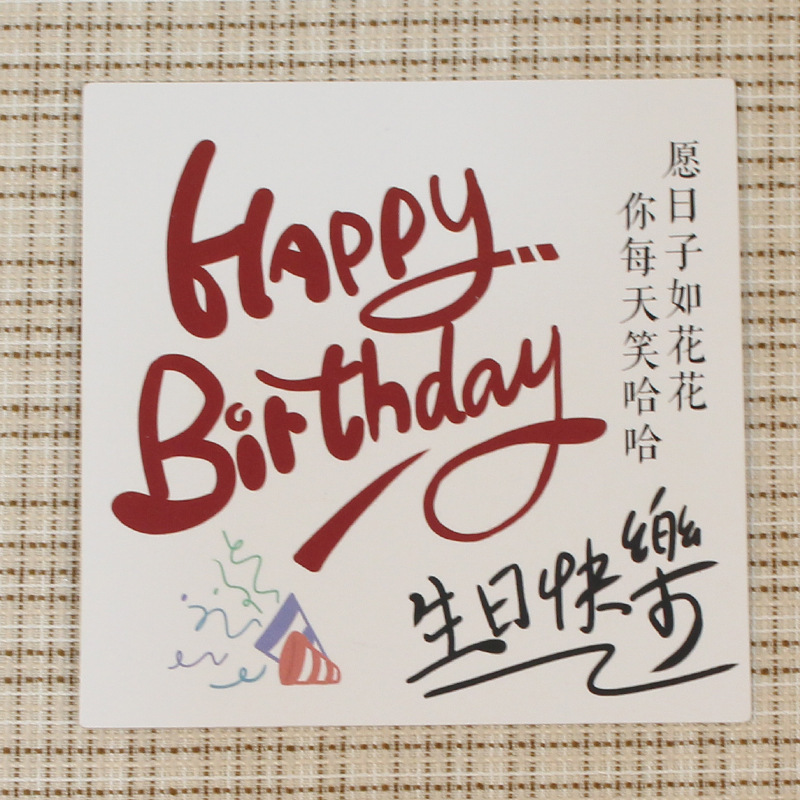 Happy
Birthday
愿日子如花花
你每天笑哈哈
生日快樂